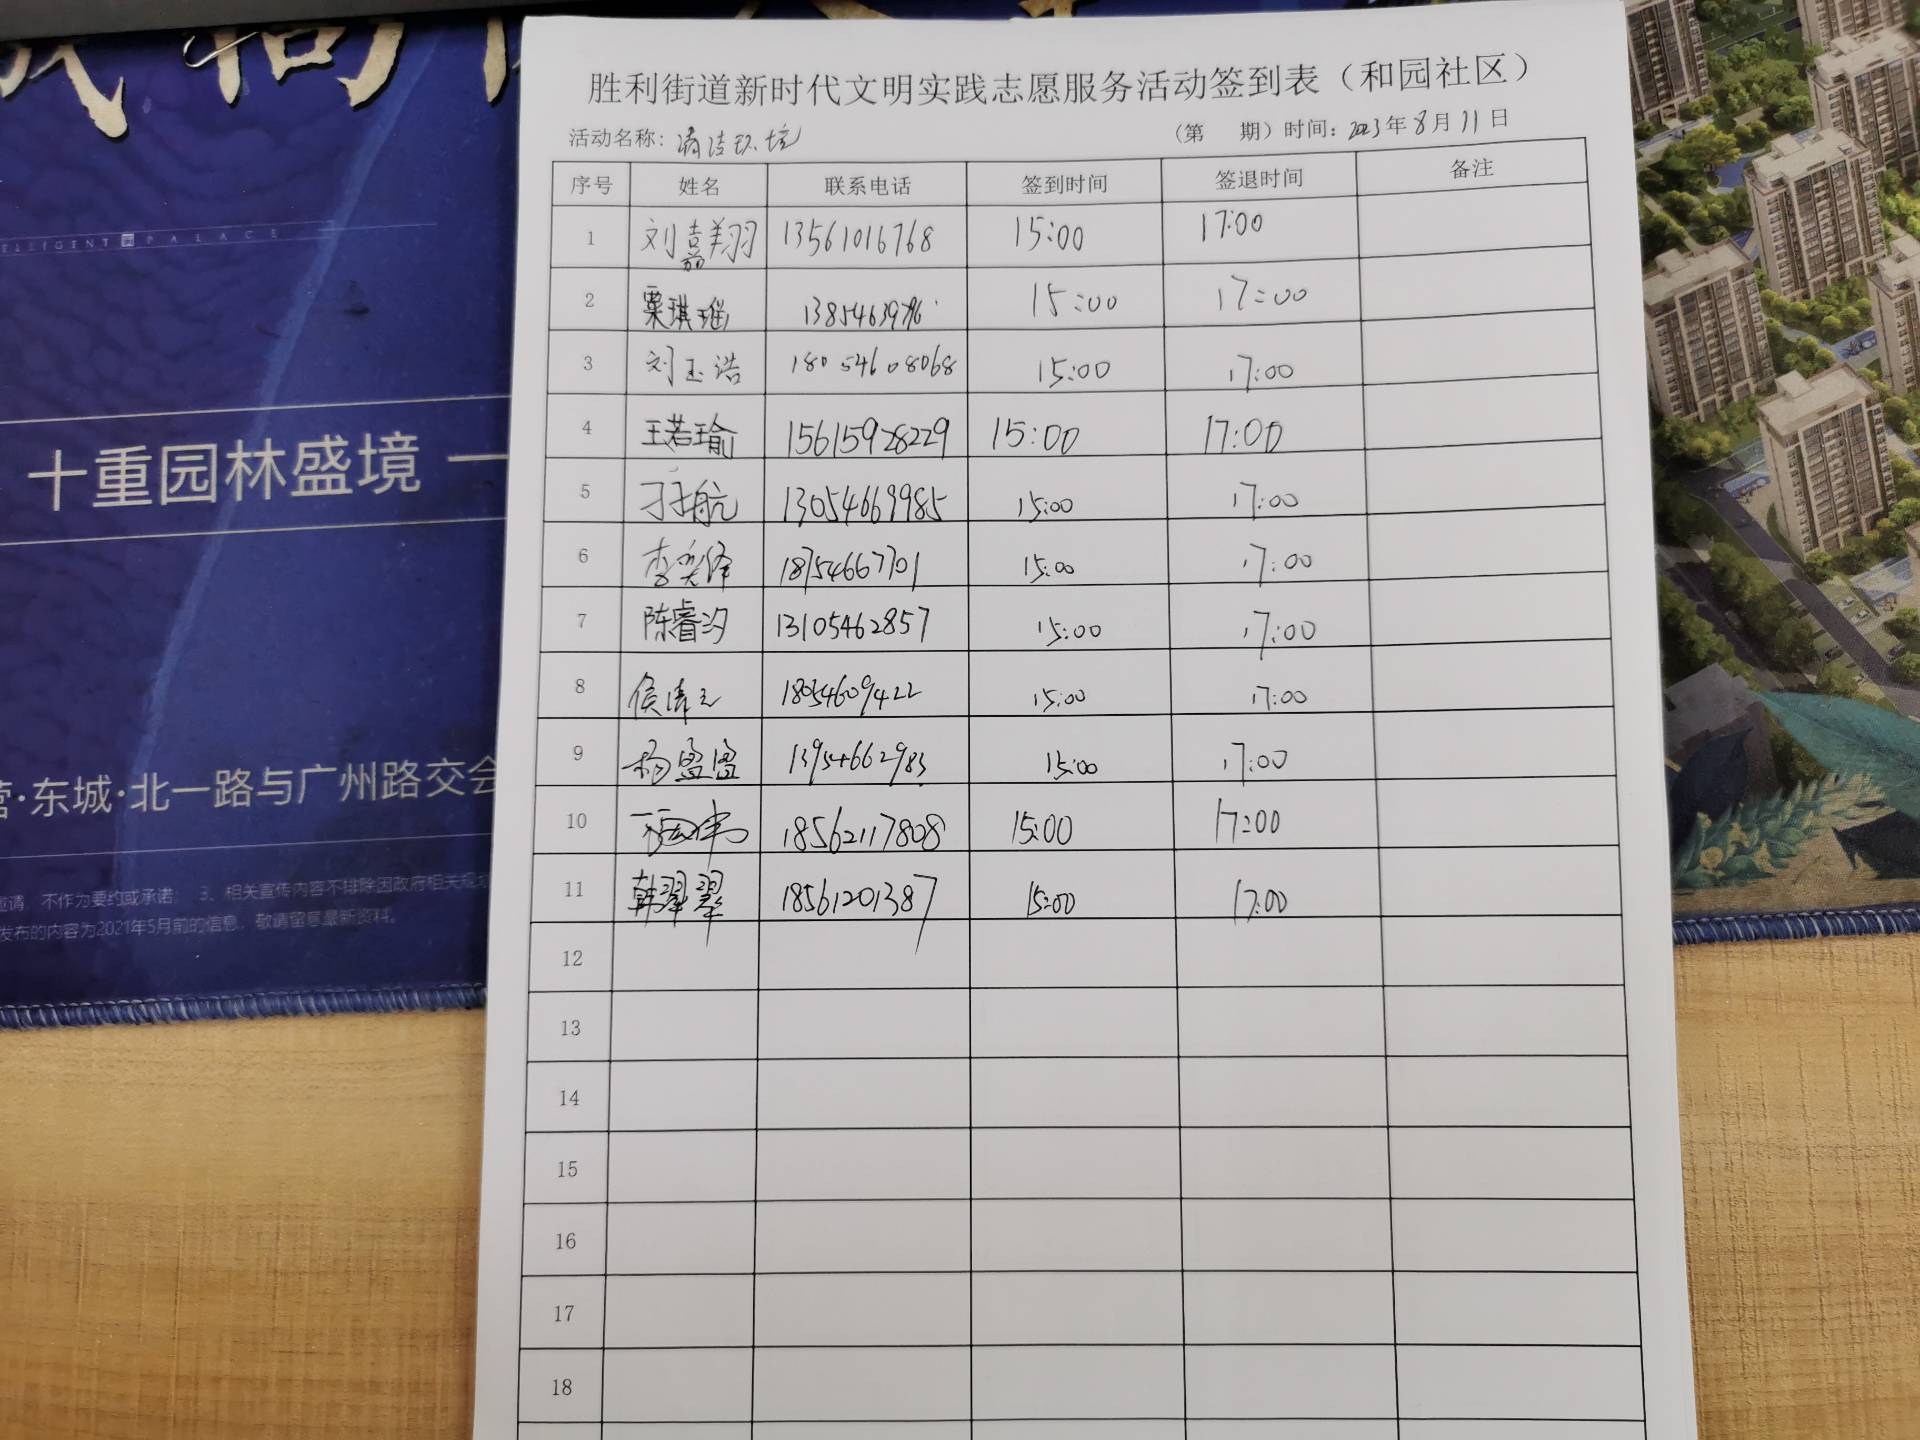 ELLIGENT PALACE
十重园林盛境 一
营·东城·北一路与广州路交会
邀请 不作为要约或承诺; 3、相关宣传内容不排除因政府相关规划
发布的内容为2021年5月前的信息,敬请留意最新资料。
胜利街道新时代文明实践志愿服务活动签到表(和园社区)
活动名称: 清洁环境 (第 期)时间: 2023年8月11日
序号 姓名 联系电话 签到时间 签退时间 备注
1 刘嘉翔 13561016768 15:00 17:00
2 栗琪瑶 15:00 17:00
3 刘玉浩 18054608068 15:00 17:00
4 王若瑜 15615928229 15:00 17:00
5 航 13054669985 15:00 17:00
6 李奕泽 18754667701 15:00 17:00
7 陈睿汐 13105462857 15:00 17:00
8 侯 18054609422 15:00 17:00
9 杨盛盛 13954662983 15:00 17:00
10 18562117808 15:00 17:00
11 韩翠翠 18561201387 15:00 17:00
12
13
14
15
16
17
18